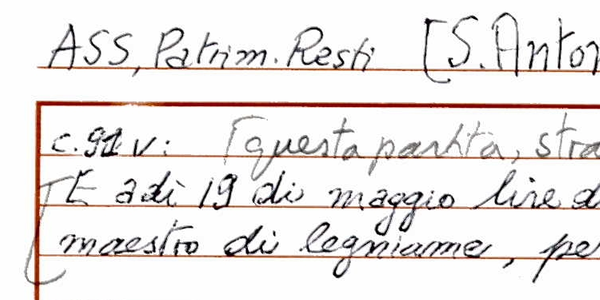 ASS, Patrim. Resti [S. Anton
c. 91 v: [questa partita, stra
[E adì 19 di maggio lire d
maestro di legniame, pe